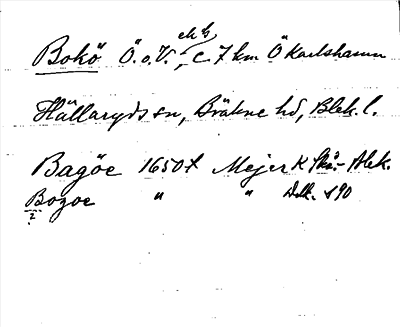 Bokö Ö. o. V. ek h, c 7 km Ö Karlshamn
Hällaryds sn, Bräkne hd, Blek. l.
Bagöe 1650t Mejer K Skå.- Blek.
Bozoe " " Ddk. 190
z